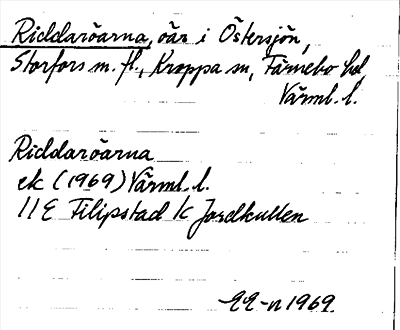 Riddaröarna, öar i Östersjön,
Storfors m. fl., Kroppa sn, Färnebo hd,
Värml. l.
Riddaröarna
ek (1969) Värml. l.
11 E Filipstad 1c Jordkullen
EE-n 1969.